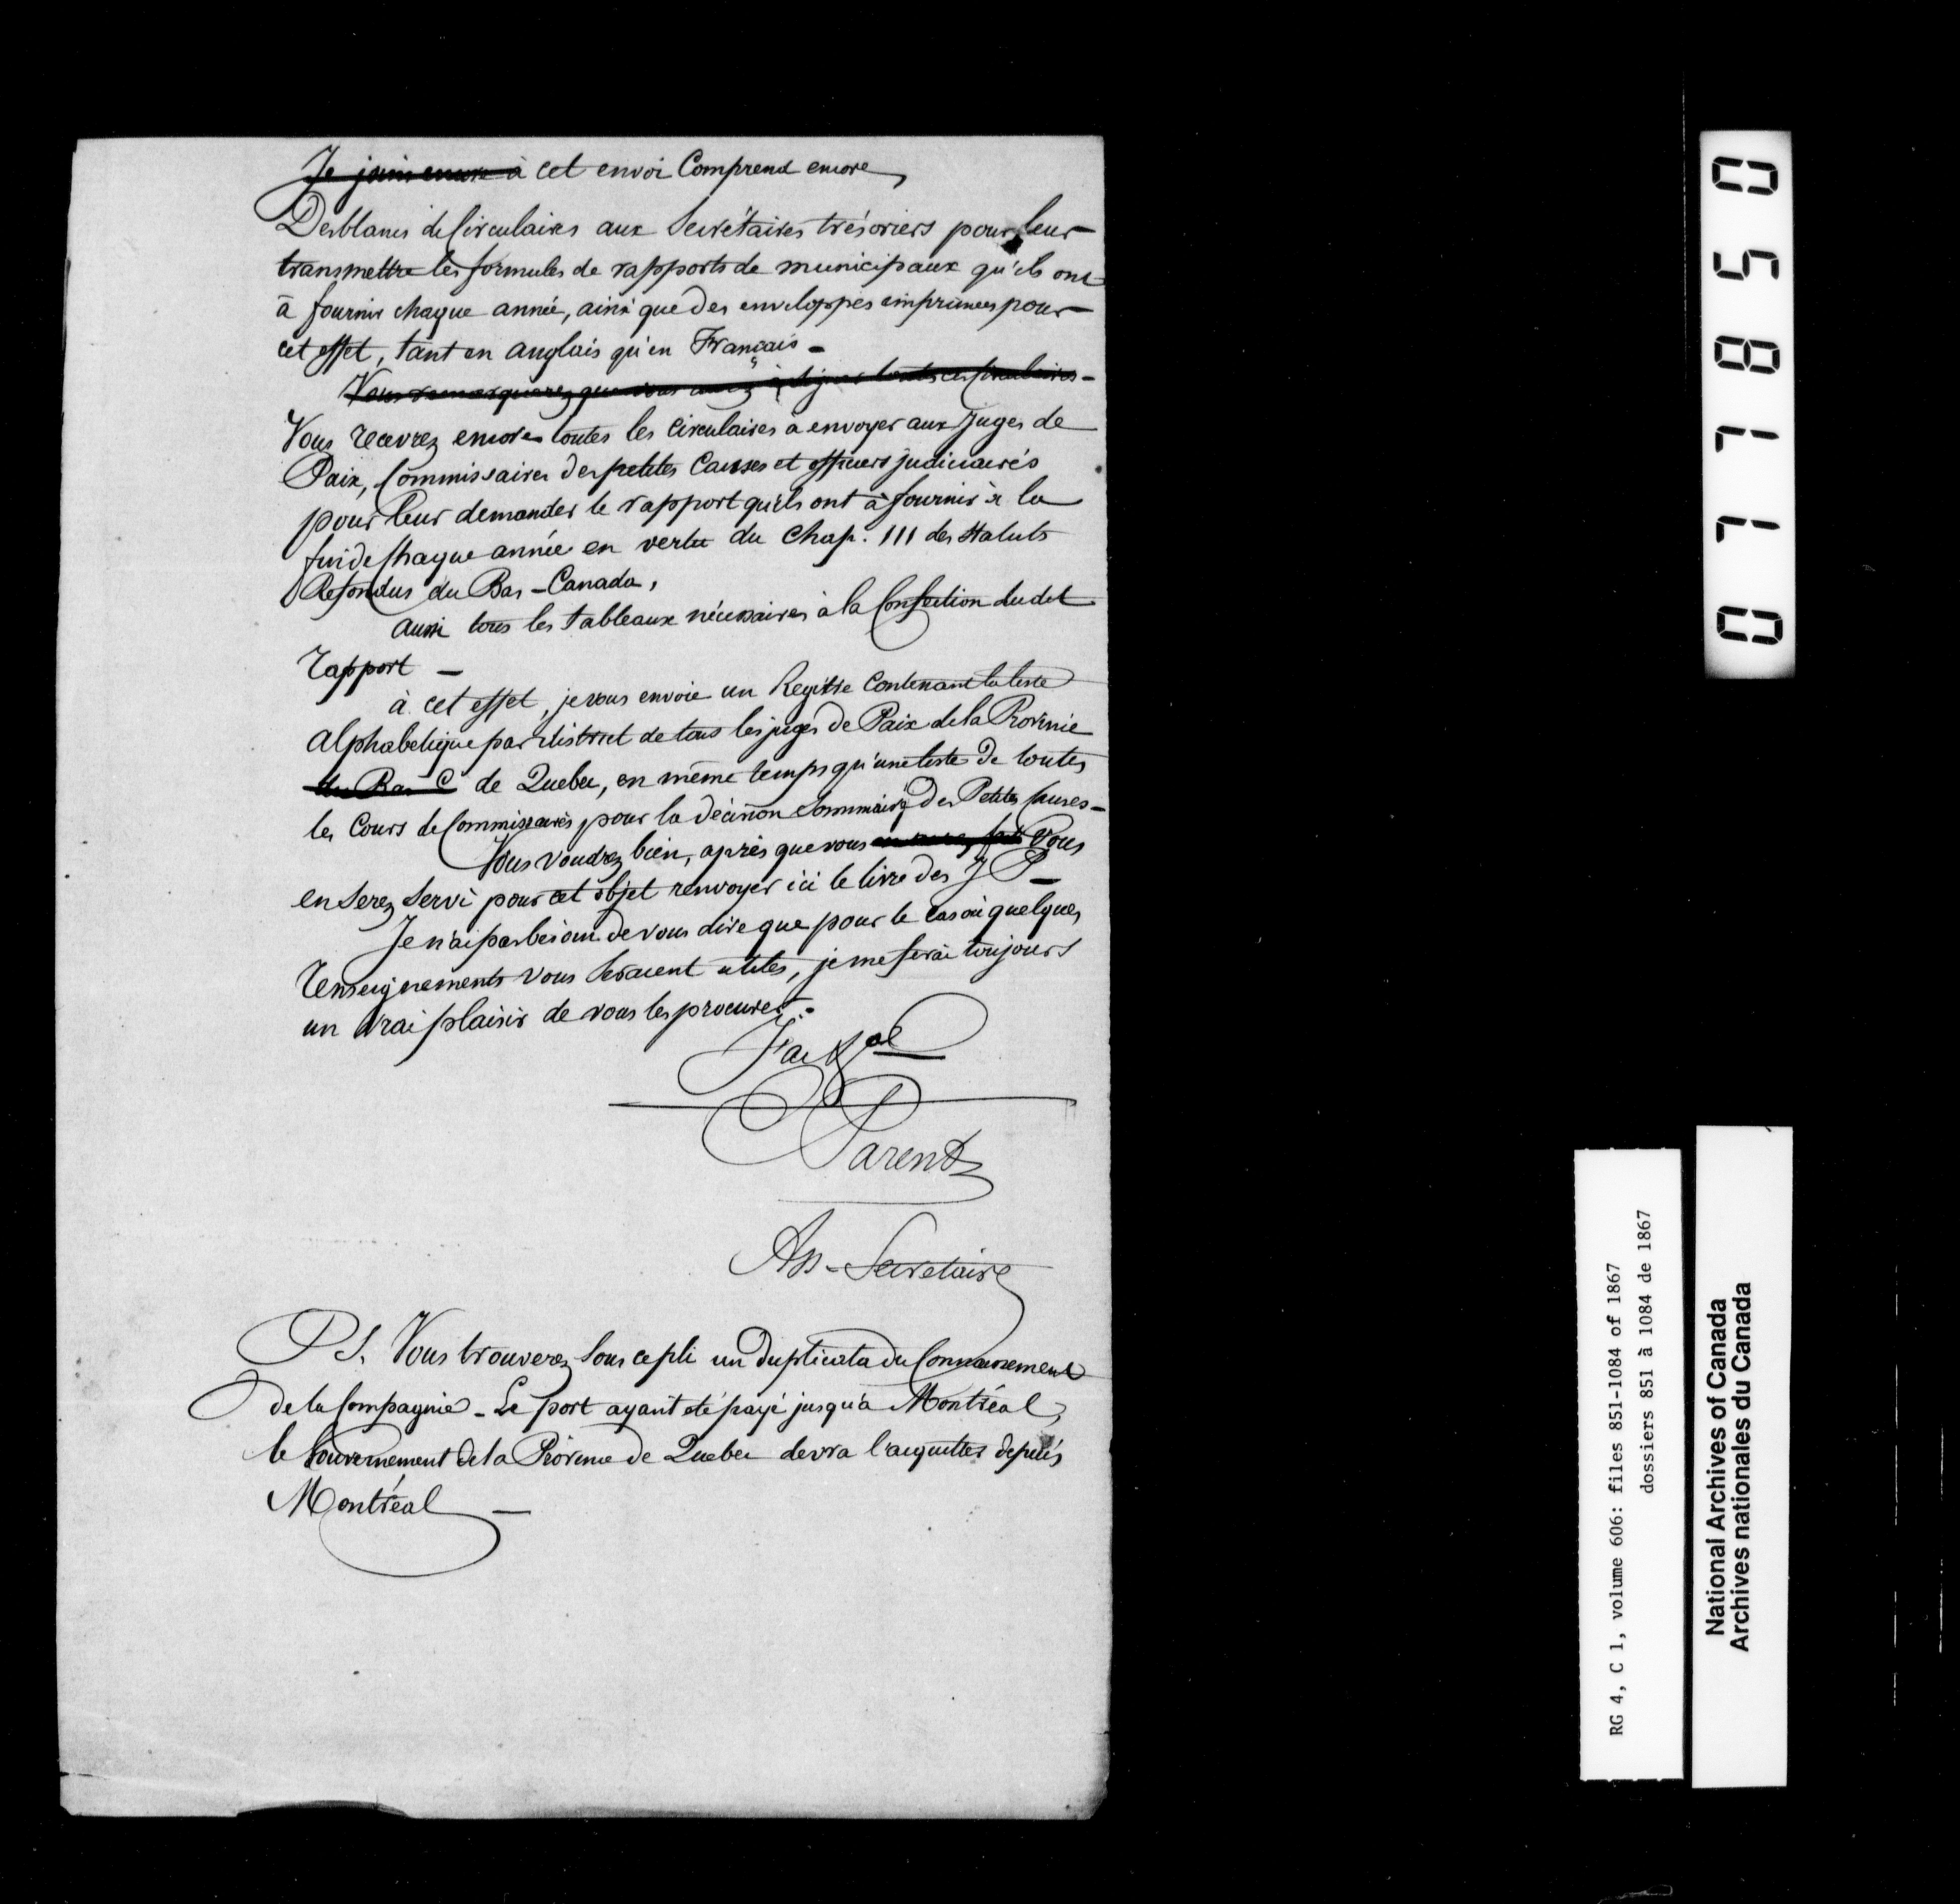 Je joins encore à cet envoi Comprend encore,
Des blancs de Circulaires aux Secrétaires trésoriers pour leur
transmettre les formules de rapports de municipaux qu'ils ont
à fournir chaque année, ainsi que des enveloppes imprimées pour
cet effet, tant en anglais qu'en Français -
Vous remarquerez que vous aurez à signer toutes ces circulaires -
Vous recevrez encore toutes les circulaires a envoyer aux Juges de
Paix, Commissaires des petites Causes et officiers judiciaires
pour leur demander le rapport qu'ils ont à fournir à la
fin de chaque année en vertu du Chap. 111 des Statuts
Refondus du Bas-Canada,
aussi tous les tableaux nécessaires à la Confection dudit
rapport -
à cet effet, je vous envoie un Regitre Contenant la liste
alphabetique par district de tous les juges de Paix de la Province
du Bas C de Quebec, en même temps qu'une liste de toutes
les Cours de Commissaires pour la décision Sommaire des Petites Causes -
Vous voudrez bien, après que vous Vous
en serez servi pour cet objet renvoyer ici le livre des J P -
Je n'ai pas besoin de vous dire que pour le cas où quelques
renseignements vous seraient utiles, je me ferai toujours
un vrai plaisir de vous les procurer -
Parent
Ass - Secretaire
P S. Vous trouverez sous ce pli un Duplicata du Connaissement
de la Compagnie - Le port ayant été payé jusqu'à Montréal,
le Gouvernement de la Province de Quebec devra l'acquitter depuis
Montréal -
077850
RG 4, C 1, volume 606: files 851-1084 of 1867
dossiers 851 à 1084 de 1867
National Archives of Canada
Archives nationales du Canada